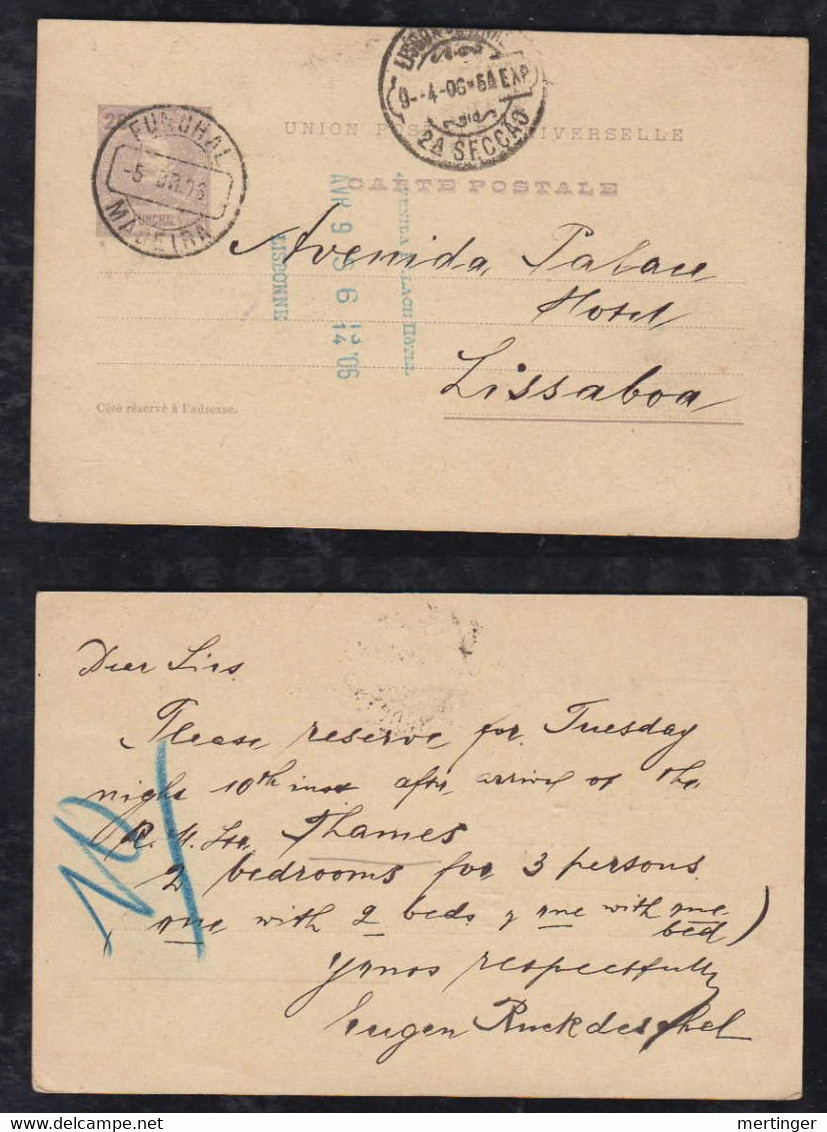 LISBOA CENTRAL
9-4-06·5A EXP
2A SECCÃO
FUNCHAL
-5 ABR.06
MADEIRA
UNION POSTALE UNIVERSELLE
CARTE POSTALE
AVENIDA PALACE HÔTEL
AVR 9 S 6 '06
LISBONNE
Avenida Palace
Hotel
Lissaboa
Côté réservé à l'adresse.
Dear Sirs
Please reserve for Tuesday
night 10th inst after arrival of the
R. M. Str, Thames
2 bedrooms for 3 persons
(one with 2 beds & one with one
bed)
Yours respectfully
Eugen Ruckdeschel
10
Delcampe.net
mertinger